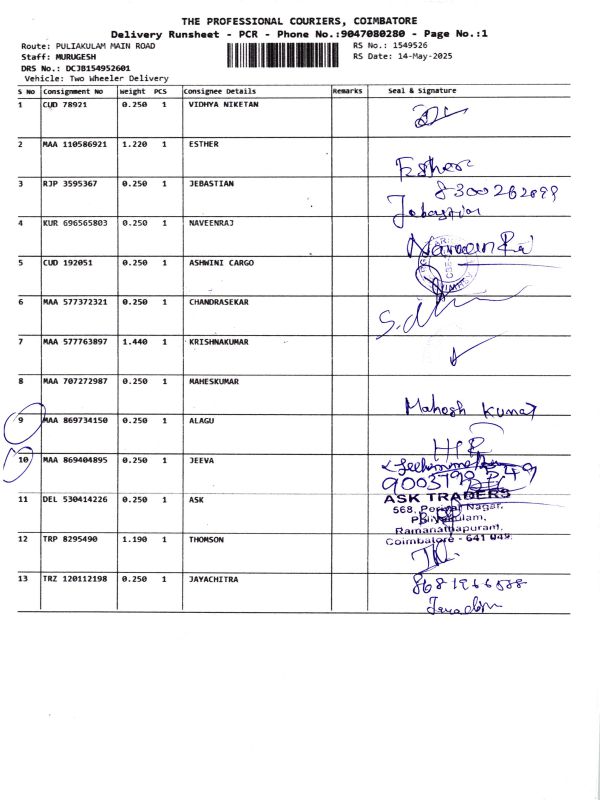 THE PROFESSIONAL COURIERS, COIMBATORE
Delivery Runsheet - PCR - Phone No.:9047080280 - Page No.:1
Route: PULIAKULAM MAIN ROAD RS No.: 1549526
Staff: MURUGESH RS Date: 14-May-2025
DRS No.: DCJB154952601
Vehicle: Two Wheeler Delivery
S No Consignment No Weight PCS Consignee Details Remarks Seal & Signature
1 CUD 78921 0.250 1 VIDHYA NIKETAN
2 MAA 110586921 1.220 1 ESTHER
Esther
3 RJP 3595367 0.250 1 JEBASTIAN
8300262099
Jebastian
4 KUR 696565803 0.250 1 NAVEENRAJ
Naveen Raj
5 CUD 192051 0.250 1 ASHWINI CARGO
6 MAA 577372321 0.250 1 CHANDRASEKAR
7 MAA 577763897 1.440 1 KRISHNAKUMAR
8 MAA 707272987 0.250 1 MAHESKUMAR
Mahesh Kumar
9 MAA 869734150 0.250 1 ALAGU
10 MAA 869404895 0.250 1 JEEVA
11 DEL 530414226 0.250 1 ASK
ASK TRADERS
568, Nagar,
Puliyakulam,
Ramanathapuram,
Coimbatore - 641 045.
12 TRP 8295490 1.190 1 THOMSON
13 TRZ 120112198 0.250 1 JAYACHITRA